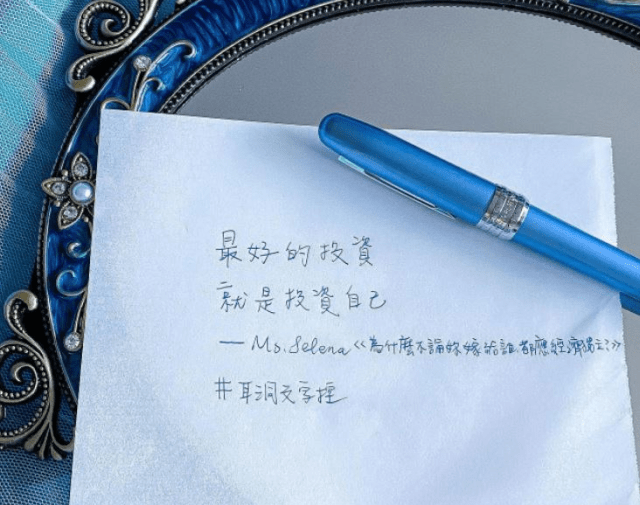 最好的投資
就是投資自己
— Ms. Selena《為什麼不論妳嫁給誰,都應經濟獨立?》
#耳洞文字控